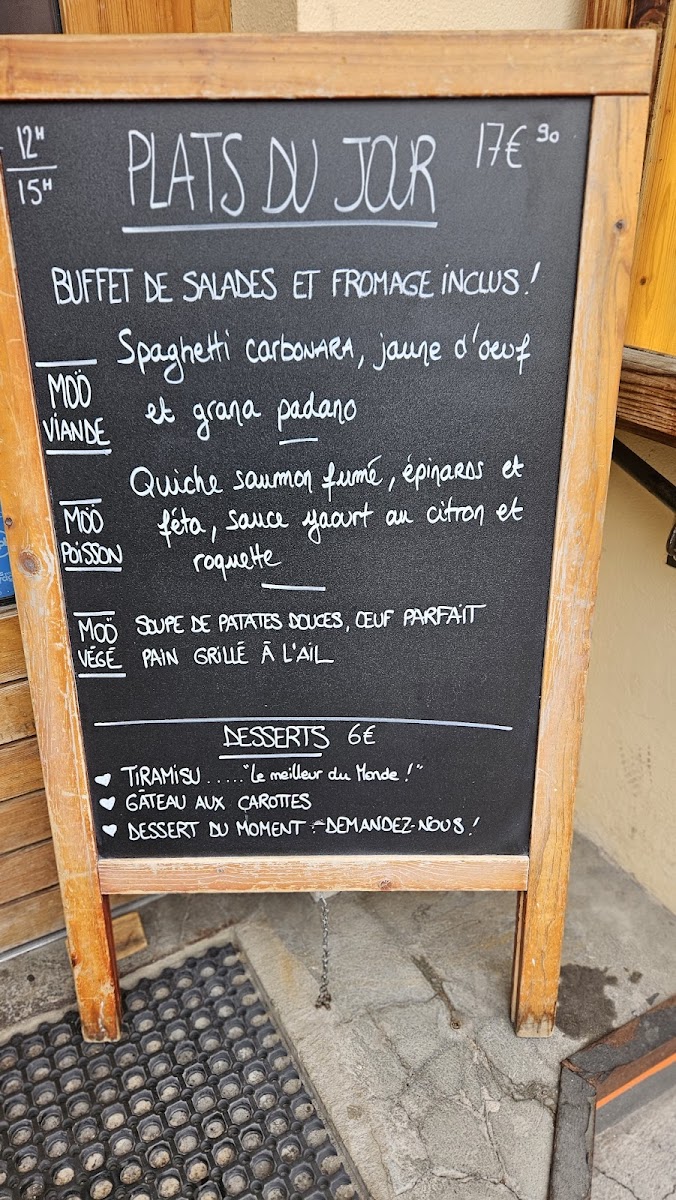 12H
15H
PLATS DU JOUR
17€90
BUFFET DE SALADES ET FROMAGE INCLUS !
MOÖ
VIANDE
Spaghetti CARBONARA, jaune d'oeuf
et grana padano
MOÖ
POISSON
Quiche saumon fumé, épinards et
féta, sauce yaourt au citron et
roquette
MOÖ
VÉGÉ
SOUPE DE PATATES DOUCES, ŒUF PARFAIT
PAIN GRILLÉ À L'AIL
DESSERTS 6€
TIRAMISU ....."Le meilleur du Monde !"
GÂTEAU AUX CAROTTES
DESSERT DU MOMENT : DEMANDEZ-NOUS !